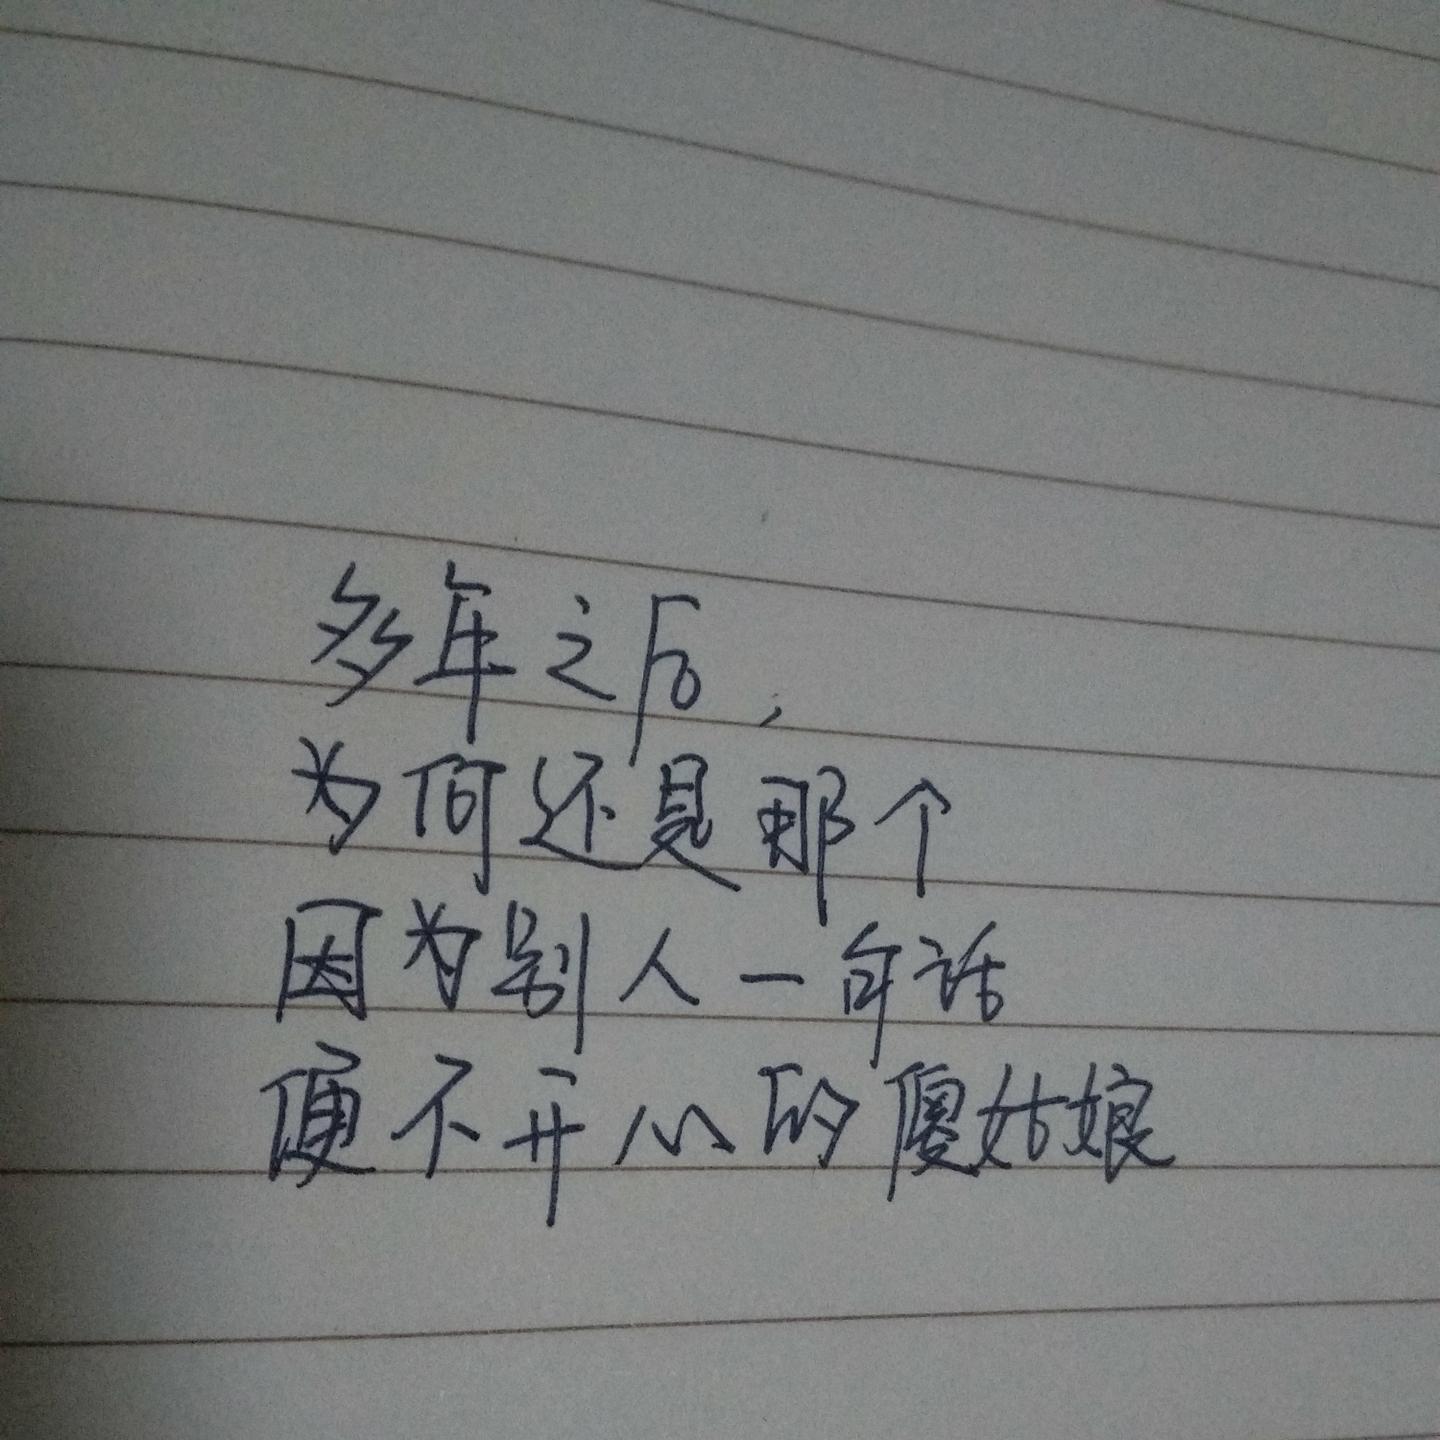 多年之后,
为何还是那个
因为别人一句话
便不开心的傻姑娘